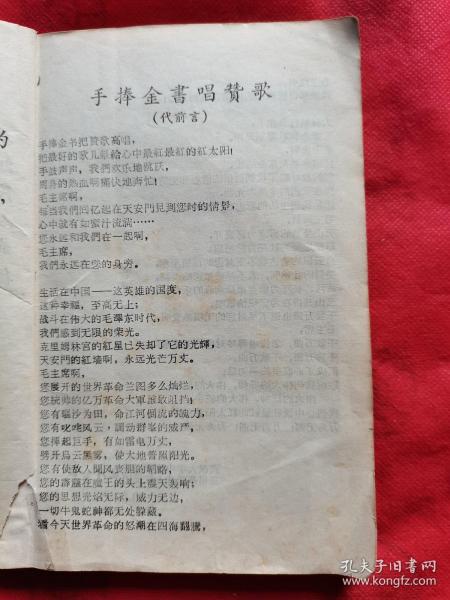 手捧金書唱贊歌
(代前言)
手捧金书把贊歌高唱，
把最好的歌儿献給心中最紅最紅的紅太阳！
手鼓声声，我們欢乐地跳跃，
满身的热血啊痛快地奔忙！
毛主席啊，
每当我們回忆起在天安門見到您时的情景，
心中就有如蜜汁流淌……
您永远和我們在一起啊，
毛主席，
我們永远在您的身旁。
生活在中国——这英雄的国度，
这种幸福，至高无上；
战斗在伟大的毛澤东时代，
我們感到无限的荣光。
克里姆林宮的紅星已失却了它的光輝，
天安門的紅墙啊，永远光芒万丈。
毛主席啊，
您展开的世界革命兰图多么灿烂，
您統帅的亿万革命大軍誰敢阻挡！
您有驅沙为田，命江河倒流的魄力，
您有叱咤风云，調动群峯的威严，
您揮起巨手，有如雷电万丈，
劈开烏云黑雾，使大地普照阳光。
您有使敌人聞风丧胆的韜略，
您的霹靂在魔王的头上震天轰响；
您的思想光焰无际，威力无边，
一切牛鬼蛇神都无处躱藏。
看今天世界革命的怒潮在四海翻騰，
的
，
孔夫子旧书网
www.kongfz.com